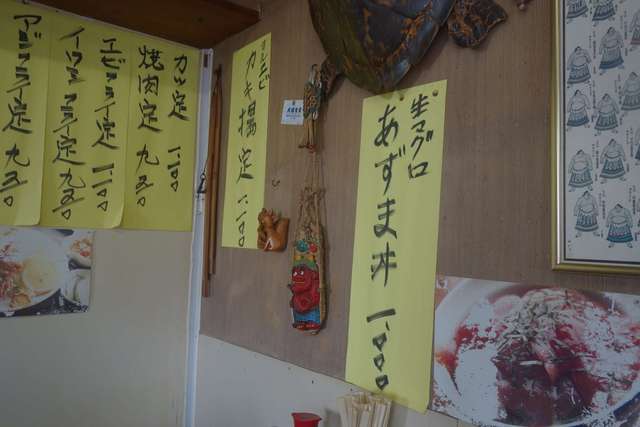 生マグロ
あずま丼 一.〇〇〇
ヨシエビ
カキ揚定 一.一〇〇
カツ定 一.〇〇〇
焼肉定 九五〇
エビフライ定 一.一〇〇
イワシフライ定 九五〇
アジフライ定 九五〇